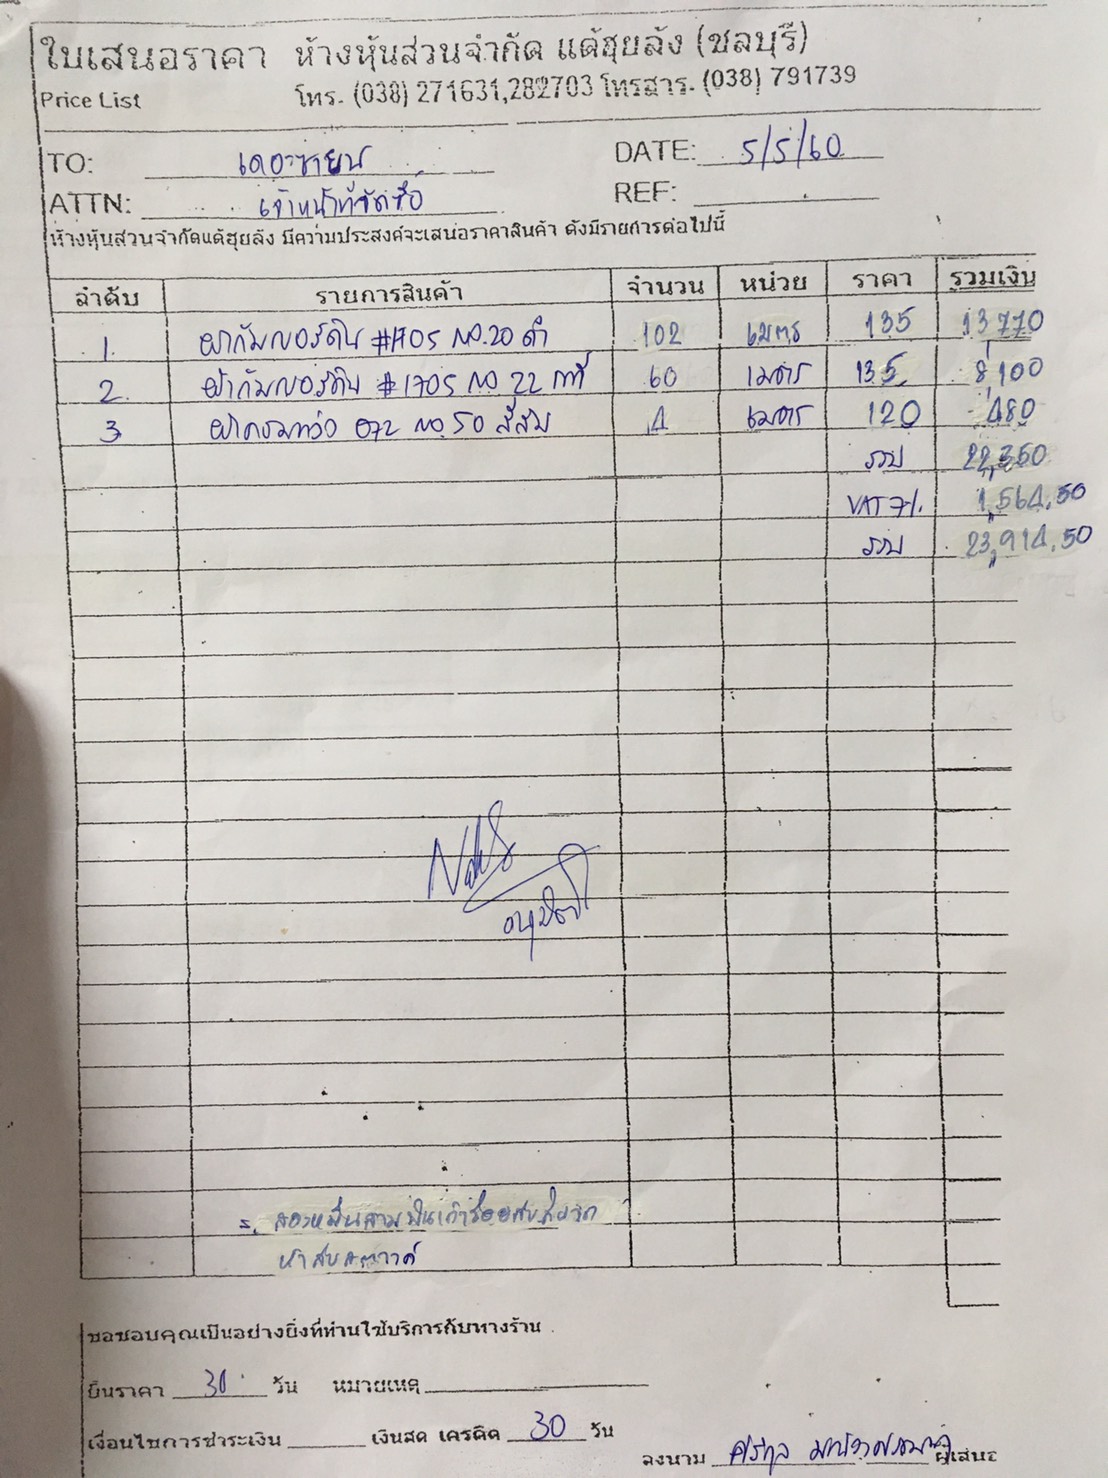 ใบเสนอราคา ห้างหุ้นส่วนจำกัด แต้ฮุยลัง (ชลบุรี)
Price List โทร. (038) 271631,282703 โทรสาร. (038) 791739
TO: เดอะซายน์ DATE: 5/5/60
ATTN: เจ้าหน้าที่จัดซื้อ REF:
ห้างหุ้นส่วนจำกัดแต้ฮุยลัง มีความประสงค์จะเสนอราคาสินค้า ดังมีรายการต่อไปนี้
ลำดับ รายการสินค้า จำนวน หน่วย ราคา รวมเงิน
1. #1705 NO.20 ดำ 102 เมตร 135 13,770
2. #1705 NO.22 60 เมตร 135 8,100
3 872 NO.50 สีส้ม 4 เมตร 120 480
รวม 22,350
VAT 7% 1,564.50
รวม 23,914.50
อนุมัติ
=. สองหมื่นสามพันเก้าร้อยสิบสี่บาท
ห้าสิบสตางค์
ขอขอบคุณเป็นอย่างยิ่งที่ท่านใช้บริการกับทางร้าน
ยืนราคา 30 วัน หมายเหตุ
เงื่อนไขการชำระเงิน เงินสด เครดิต 30 วัน
ลงนาม ผู้เสนอ